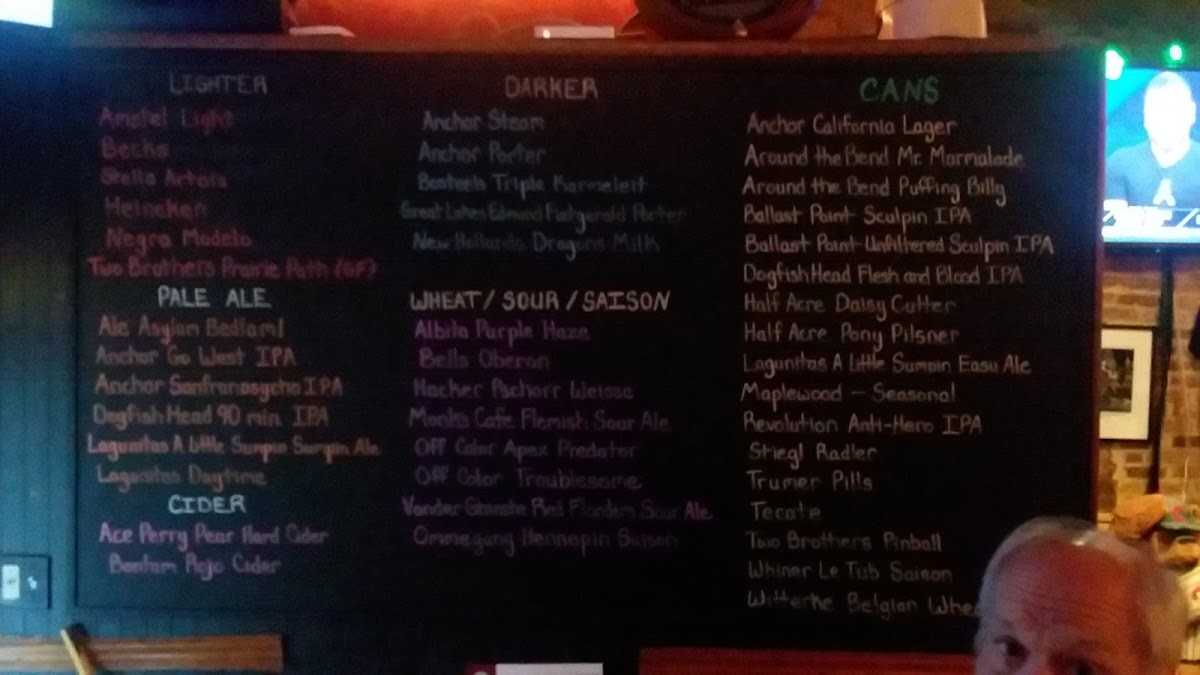 LIGHTER
Amstel Light
Becks
Stella Artois
Heineken
Negra Modelo
Two Brothers Prairie Path (GF)
PALE ALE
Ale Asylum Bedlam!
Anchor Go West IPA
Anchor Sanfranpsycho IPA
Dogfish Head 90 min IPA
Lagunitas A Little Sumpin Sumpin Ale
Lagunitas Daytime
CIDER
Ace Perry Pear Hard Cider
Bantam Rojo Cider
DARKER
Anchor Steam
Anchor Porter
Bosteels Triple Karmeleit
Great Lakes Edmund Fitzgerald Porter
New Hollands Dragons Milk
WHEAT / SOUR / SAISON
Albita Purple Haze
Bells Oberon
Hacker Pschorr Weisse
Monks Cafe Flemish Sour Ale
Off Color Apex Predator
Off Color Troublesome
Vander Ghinste Red Flanders Sour Ale
Ommegang Hennepin Saison
CANS
Anchor California Lager
Around the Bend Mr. Marmalade
Around the Bend Puffing Billy
Ballast Point Sculpin IPA
Ballast Point Unfiltered Sculpin IPA
Dogfish Head Flesh and Blood IPA
Half Acre Daisy Cutter
Half Acre Pony Pilsner
Lagunitas A Little Sumpin Easy Ale
Maplewood - Seasonal
Revolution Anti-Hero IPA
Stiegl Radler
Trumer Pills
Tecate
Two Brothers Pinball
Whiner Le Tub Saison
Witterke Belgian Whea